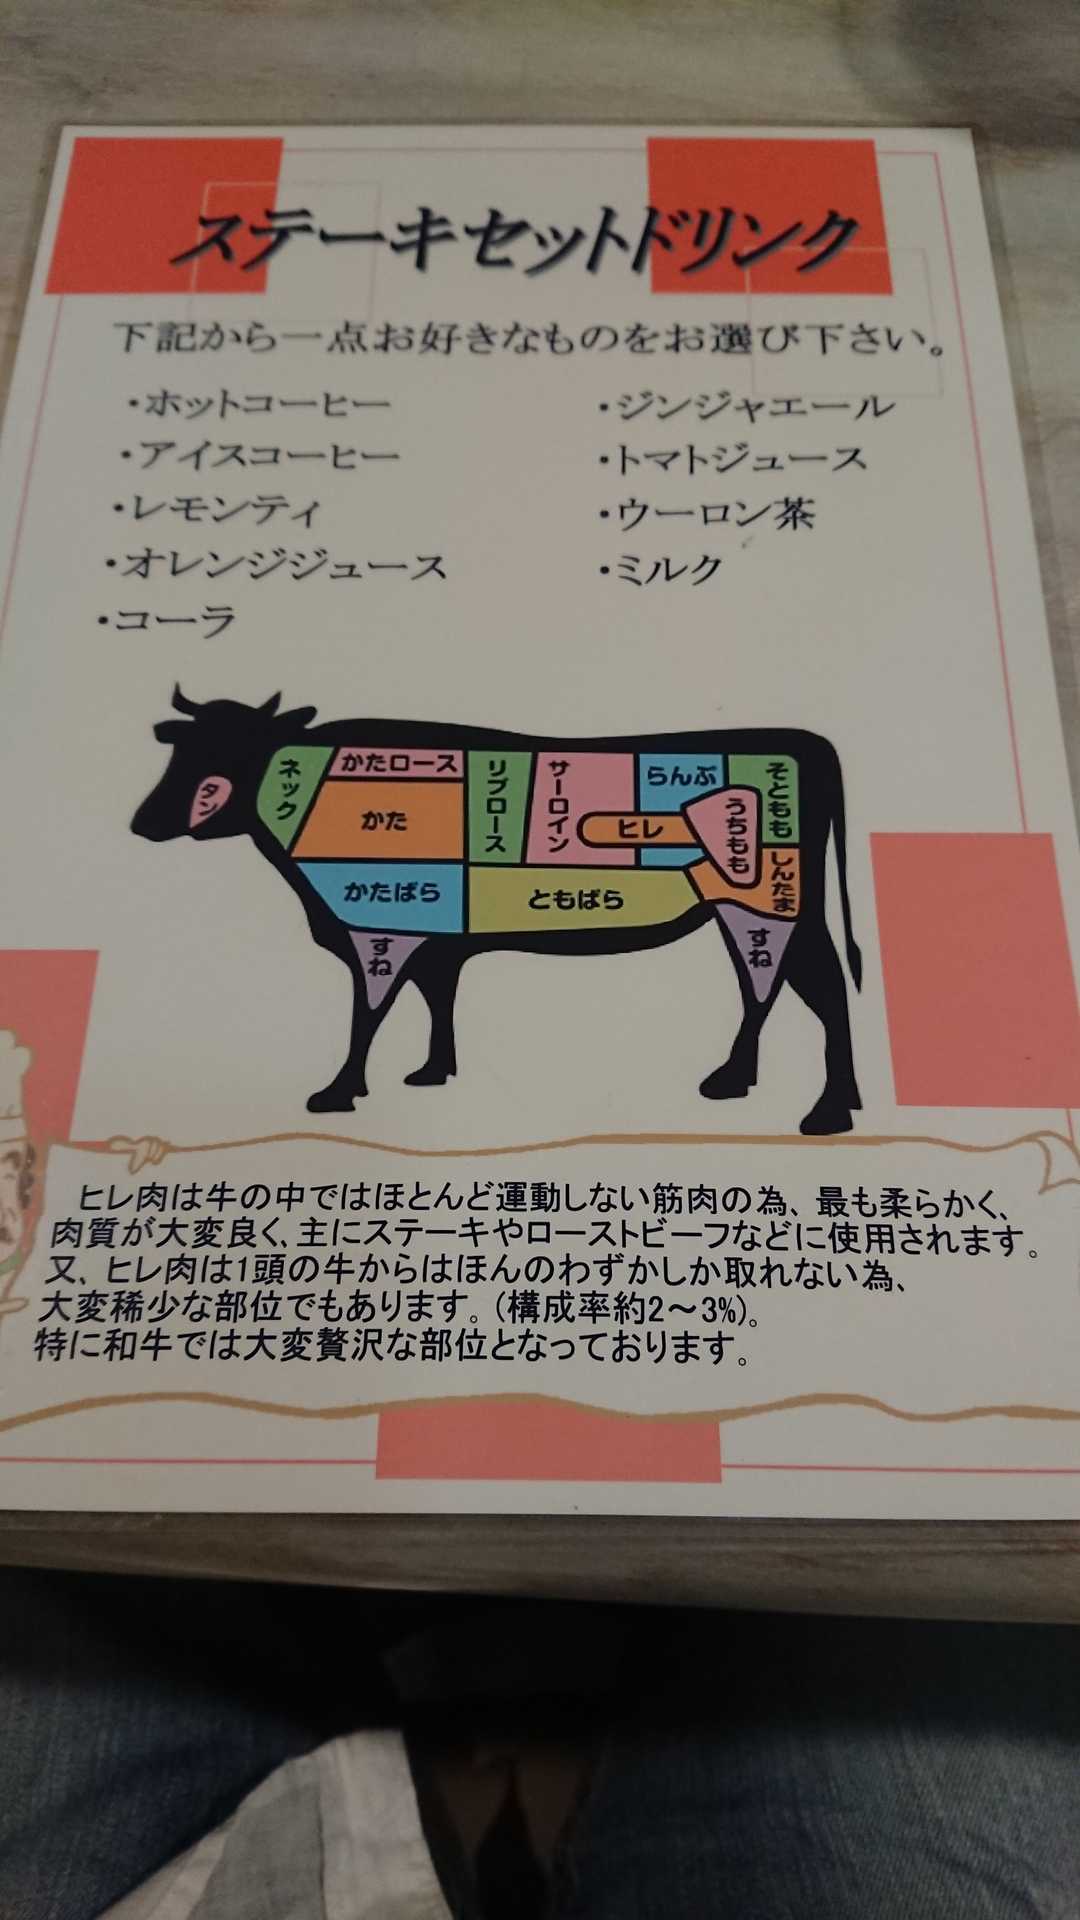 ステーキセットドリンク
下記から一点お好きなものをお選び下さい。
・ホットコーヒー
・アイスコーヒー
・レモンティ
・オレンジジュース
・コーラ
・ジンジャエール
・トマトジュース
・ウーロン茶
・ミルク
タン
ネック
かたロース
かた
かたばら
すね
リブロース
サーロイン
ヒレ
ともばら
らんぷ
うちもも
そともも
しんたま
すね
ヒレ肉は牛の中ではほとんど運動しない筋肉の為、最も柔らかく、
肉質が大変良く、主にステーキやローストビーフなどに使用されます。
又、ヒレ肉は1頭の牛からはほんのわずかしか取れない為、
大変稀少な部位でもあります。(構成率約2～3%)。
特に和牛では大変贅沢な部位となっております。